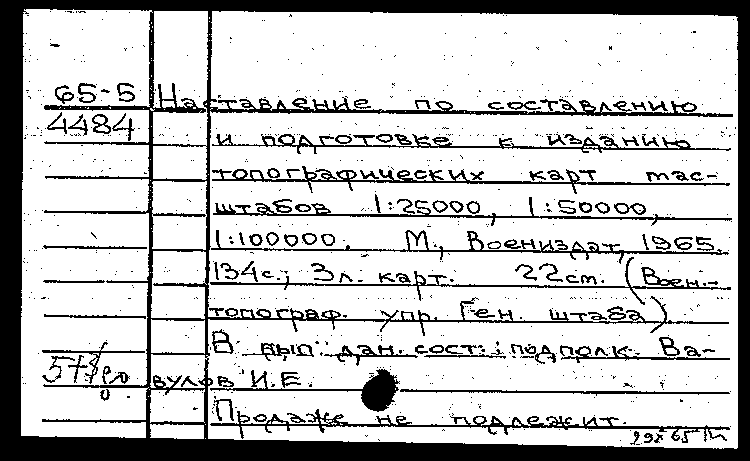 65-5 Наставление по составлению
4484 и подготовке к изданию
топографических карт мас-
штабов 1:25000, 1:50000,
1:100000. М., Воениздат, 1965.
134с.; 3л. карт. 22см. (Воен.-
топограф. упр. Ген. штаба)
В вып. дан. сост.: подполк. Ва-
вулов И.Е.
Продаже не подлежит.